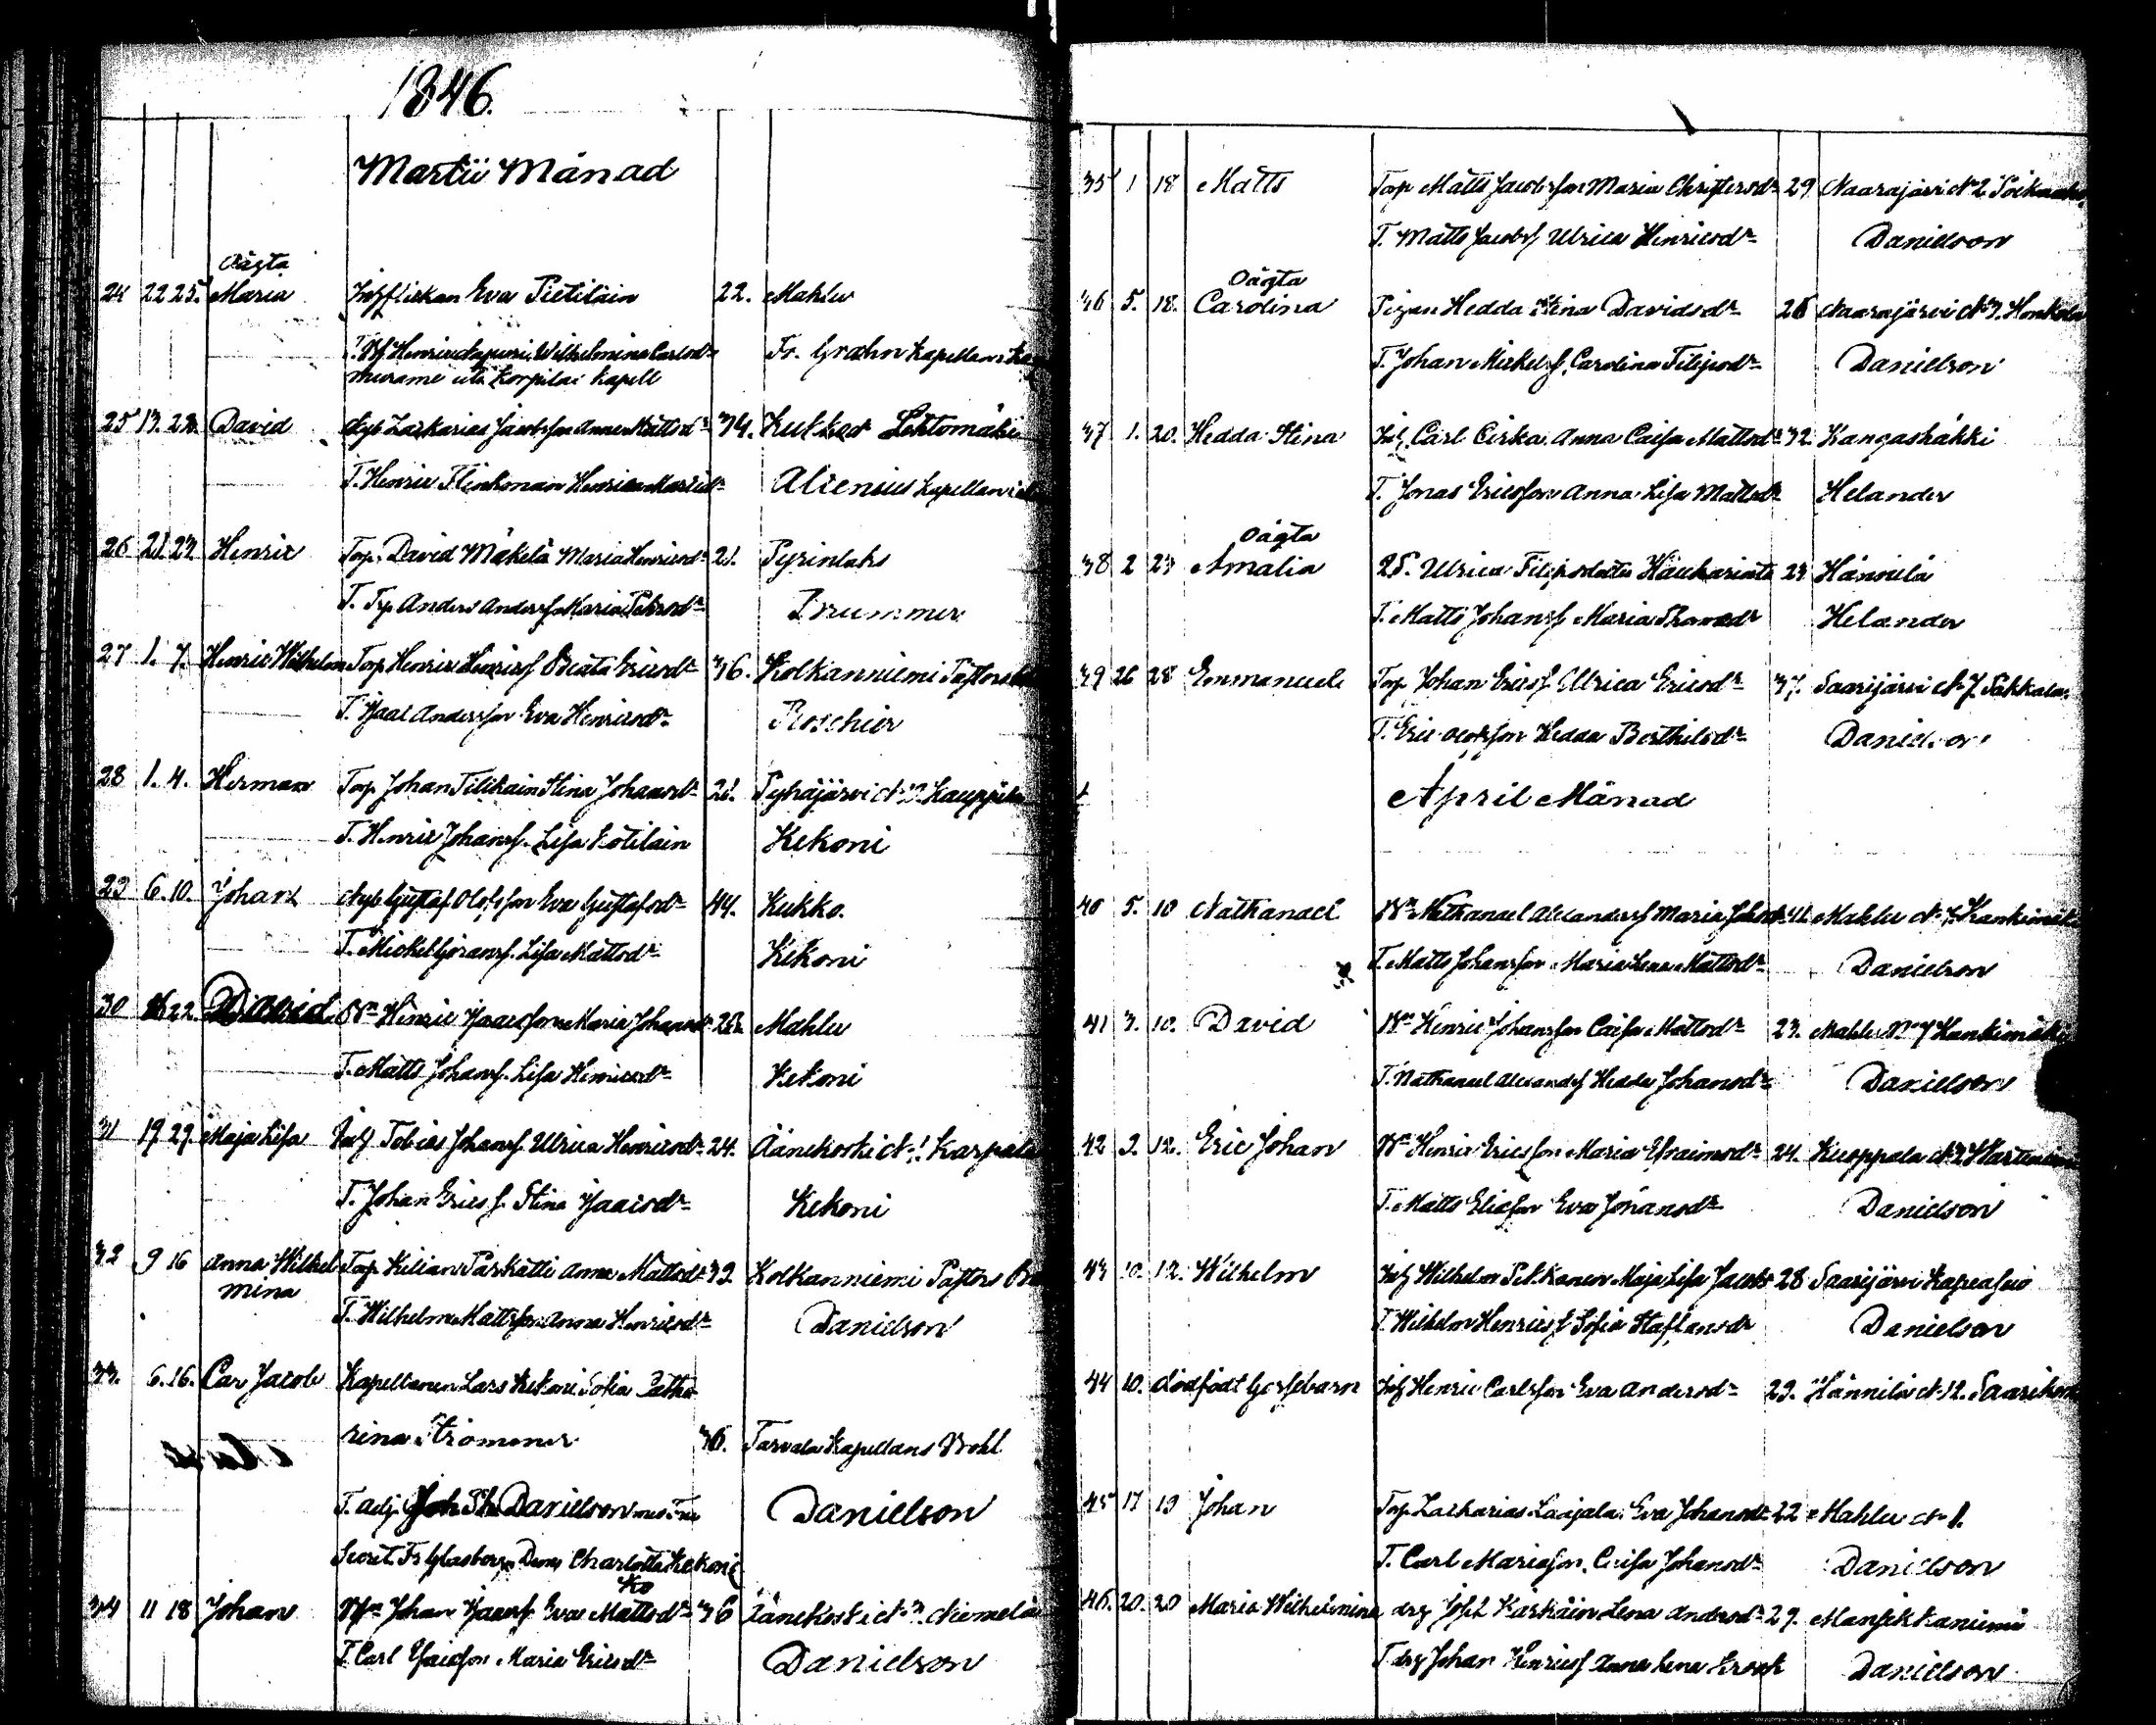 1846.
Martii Månad
Oägta
24 22 25. Maria Inhyflickan Eva Pietiläin 22. Mahlu
Wilhelmina Carlsdr Fr. Grahn Kapellan i
murame uti Korpilax Kapell
25 13. 28. David Nyb Zackarias Jacobsson Anna Mattsdr 34. Kukko Lehtomäki
T. Henric Flinkman Henrica Alcenius Kapellan i
26 21 27 Henric Torp. David Mäkelä Maria Henricsdr 21. Pyrinlaks
T. Trp Anders Andersf. Maria Petersdr Brummer
27 1. 7. Henric Wilhelm Torp Henric Henricsf Beata Ericsdr 36. Kolkanniemi Pastors
T. Isaac Andersson Eva Henricsdr Roschier
28 1. 4. Herman Torp Johan Tilikain Stina Johansdr 21. Pyhäjärvi N 12 Kauppila
T. Henric Johansf. Lisa Kotilain Kekoni
29 6. 10. Johan Nyb Gustaf Olofsson Eva Gustafsdr 44. Kukko.
T. Mickel Göransf. Lisa Mattsdr Kekoni
30 22. David Bn Henric Isacsson Maria Johansdr 26. Mahlu
T. Matts Johansf. Lisa Henricsdr Kekoni
31 19 29. Maja Lisa Inh Tobias Johansf. Ulrica Henricsdr 24. Äänekoski N 1 Karpala
T. Johan Ericsf. Stina Isaacsdr Kekoni
32 9 16 Anna Wilhel Torp Kilian Paskatti Anna Mattsdr 32 Kolkanniemi Pastors Bo
mina
T. Wilhelm Mattsson Anna Henricsdr Danielson
33. 6. 16. Car Jacob Kapellanen Lars Kekoni Sofia Catha
rina Strömmer 36. Tarvala Kapellans Bohl
T. adj. Joh Sk Danielson med Fru Danielson
Secret. Fr Glasberg Dems Charlotta Kekoni
34 11 18 Johan Bn Johan Isaacsf. Eva Mattsdr 36 Äänekoski N 3 Niemelä
T. Carl Maria Ericsdr Danielson
35 1 18 Matts Torp Matts Jacobsson Maria Christersdr 29 Naarajärvi N 2
T. Matts Jacobsf Ulrica Henricsdr Danielson
Oägta
36 5. 18. Carolina Pigan Hedda Stina Davidsdr 26 Naarajärvi N 3. Honkola
T. Johan Mickelsf. Carolina Filipsdr Danielson
37 1. 20. Hedda Stina Inh Carl Cirka Anna Caisa Mattsdr 32. Kangashäkki
T. Jonas Ericsson Anna Lisa Mattsdr Helander
Oägta
38 2 23 Amalia Ulrica Filipsdotter 23 Hännilä
T. Matts Johansf Maria Helander
39 26 28 Emmanuel Torp Johan Ericsf Ulrica Ericsdr 37. Saarijärvi N 7
T. Eric Olofsson Hedda Berthilsdr Danielson
April Månad
40 5. 10 Nathanael Bn Nathanael Alexandersf Maria Johansdr Mahlu N 7 Kankimäki
T. Matts Johansson Maria Lena Mattsdr Danielson
41 3. 10. David Bn Henric Johansson Caisa Mattsdr 23. Mahlu No 7 Kankimäki
T. Nathanael Alexandsf Hedda Johansdr Danielson
42 2. 12. Eric Johan Bn Henric Ericsson Maria Efraimsdr 24. Kuoppala N 2
T. Matts Eliasson Eva Johansdr Danielson
43 10. 12. Wilhelm Inh Wilhelm Pelkonen Maja Lisa Jacobs 28 Saarijärvi
T. Wilhelm Henricsf Sofia Staffansdr Danielson
44 10. dödfödt Gossebarn Inh Henric Carlsson Eva Andersdr 29. Hännilä N 12.
45 17 19 Johan Torp. Zackarias Laajala Eva Johansdr 22 Mahlu N 1.
T. Carl Mariasson. Caisa Johansdr Danielson
46. 20. 20 Maria Wilhelmina drg Josef Karkäin Lena Andersdr 29. Mansikkaniemi
T drg Johan Henricsf Anna Lena Danielson